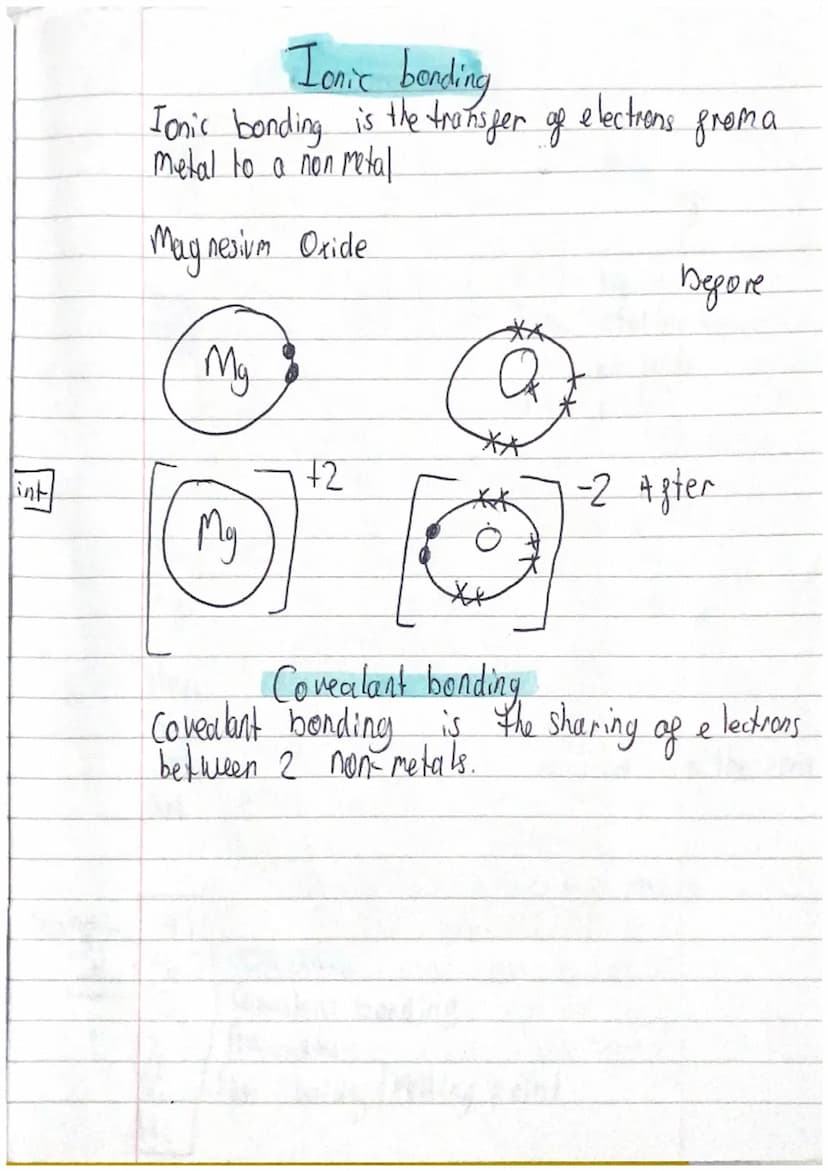 Ionic bonding
Ionic bonding is the transfer of electrons from a
metal to a non metal
Magnesium Oxide
before
Mg
O
int
Mg
+2
O
-2 After
Covealant bonding
Covealant bonding is the sharing of electrons
between 2 non-metals.